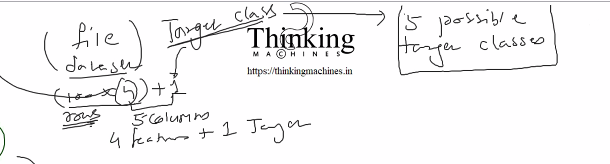 Target class
5 possible
target classes
(file
dataset)
Thinking
MACHINES
https://thinkingmachines.in
(1000 x 4) + 1
rows
5 columns
4 features + 1 Target